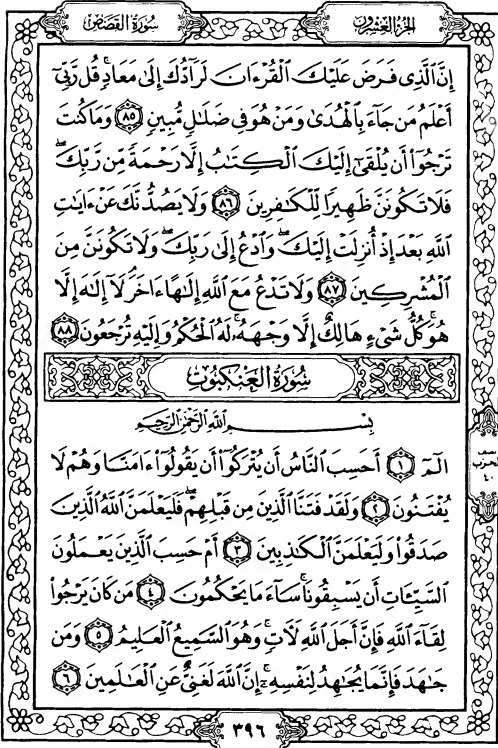 سورة القصص
الجزء العشرون
إِنَّ ٱلَّذِى فَرَضَ عَلَيْكَ ٱلْقُرْءَانَ لَرَآدُّكَ إِلَىٰ مَعَادٍ ۚ قُل رَّبِّىٓ
أَعْلَمُ مَن جَآءَ بِٱلْهُدَىٰ وَمَنْ هُوَ فِى ضَلَٰلٍ مُّبِينٍ ٨٥ وَمَا كُنتَ
تَرْجُوٓا۟ أَن يُلْقَىٰٓ إِلَيْكَ ٱلْكِتَٰبُ إِلَّا رَحْمَةً مِّن رَّبِّكَ ۖ
فَلَا تَكُونَنَّ ظَهِيرًا لِّلْكَٰفِرِينَ ٨٦ وَلَا يَصُدُّنَّكَ عَنْ ءَايَٰتِ
ٱللَّهِ بَعْدَ إِذْ أُنزِلَتْ إِلَيْكَ ۖ وَٱدْعُ إِلَىٰ رَبِّكَ ۖ وَلَا تَكُونَنَّ مِنَ
ٱلْمُشْرِكِينَ ٨٧ وَلَا تَدْعُ مَعَ ٱللَّهِ إِلَٰهًا ءَاخَرَ ۘ لَآ إِلَٰهَ إِلَّا
هُوَ ۚ كُلُّ شَىْءٍ هَالِكٌ إِلَّا وَجْهَهُۥ ۚ لَهُ ٱلْحُكْمُ وَإِلَيْهِ تُرْجَعُونَ ٨٨
سورة العنكبوت
بِسْمِ ٱللَّهِ ٱلرَّحْمَٰنِ ٱلرَّحِيمِ
الٓمٓ ١ أَحَسِبَ ٱلنَّاسُ أَن يُتْرَكُوٓا۟ أَن يَقُولُوٓا۟ ءَامَنَّا وَهُمْ لَا
يُفْتَنُونَ ٢ وَلَقَدْ فَتَنَّا ٱلَّذِينَ مِن قَبْلِهِمْ ۖ فَلَيَعْلَمَنَّ ٱللَّهُ ٱلَّذِينَ
صَدَقُوا۟ وَلَيَعْلَمَنَّ ٱلْكَٰذِبِينَ ٣ أَمْ حَسِبَ ٱلَّذِينَ يَعْمَلُونَ
ٱلسَّيِّـَٔاتِ أَن يَسْبِقُونَا ۚ سَآءَ مَا يَحْكُمُونَ ٤ مَن كَانَ يَرْجُوا۟
لِقَآءَ ٱللَّهِ فَإِنَّ أَجَلَ ٱللَّهِ لَءَاتٍ ۚ وَهُوَ ٱلسَّمِيعُ ٱلْعَلِيمُ ٥ وَمَن
جَٰهَدَ فَإِنَّمَا يُجَٰهِدُ لِنَفْسِهِۦٓ ۚ إِنَّ ٱللَّهَ لَغَنِىٌّ عَنِ ٱلْعَٰلَمِينَ ٦
نصف
الحزب
٤٠
٣٩٦